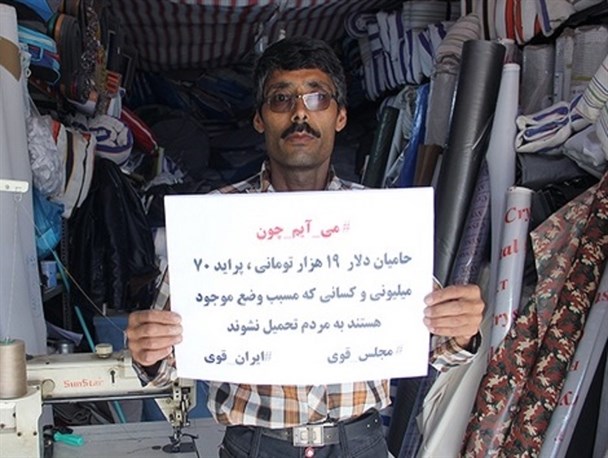 #می_آیم_چون
حامیان دلار ۱۹ هزار تومانی ، پراید ۷۰
میلیونی و کسانی که مسبب وضع موجود
هستند به مردم تحمیل نشوند
#مجلس_قوی #ایران_قوی
SunStar
Cry